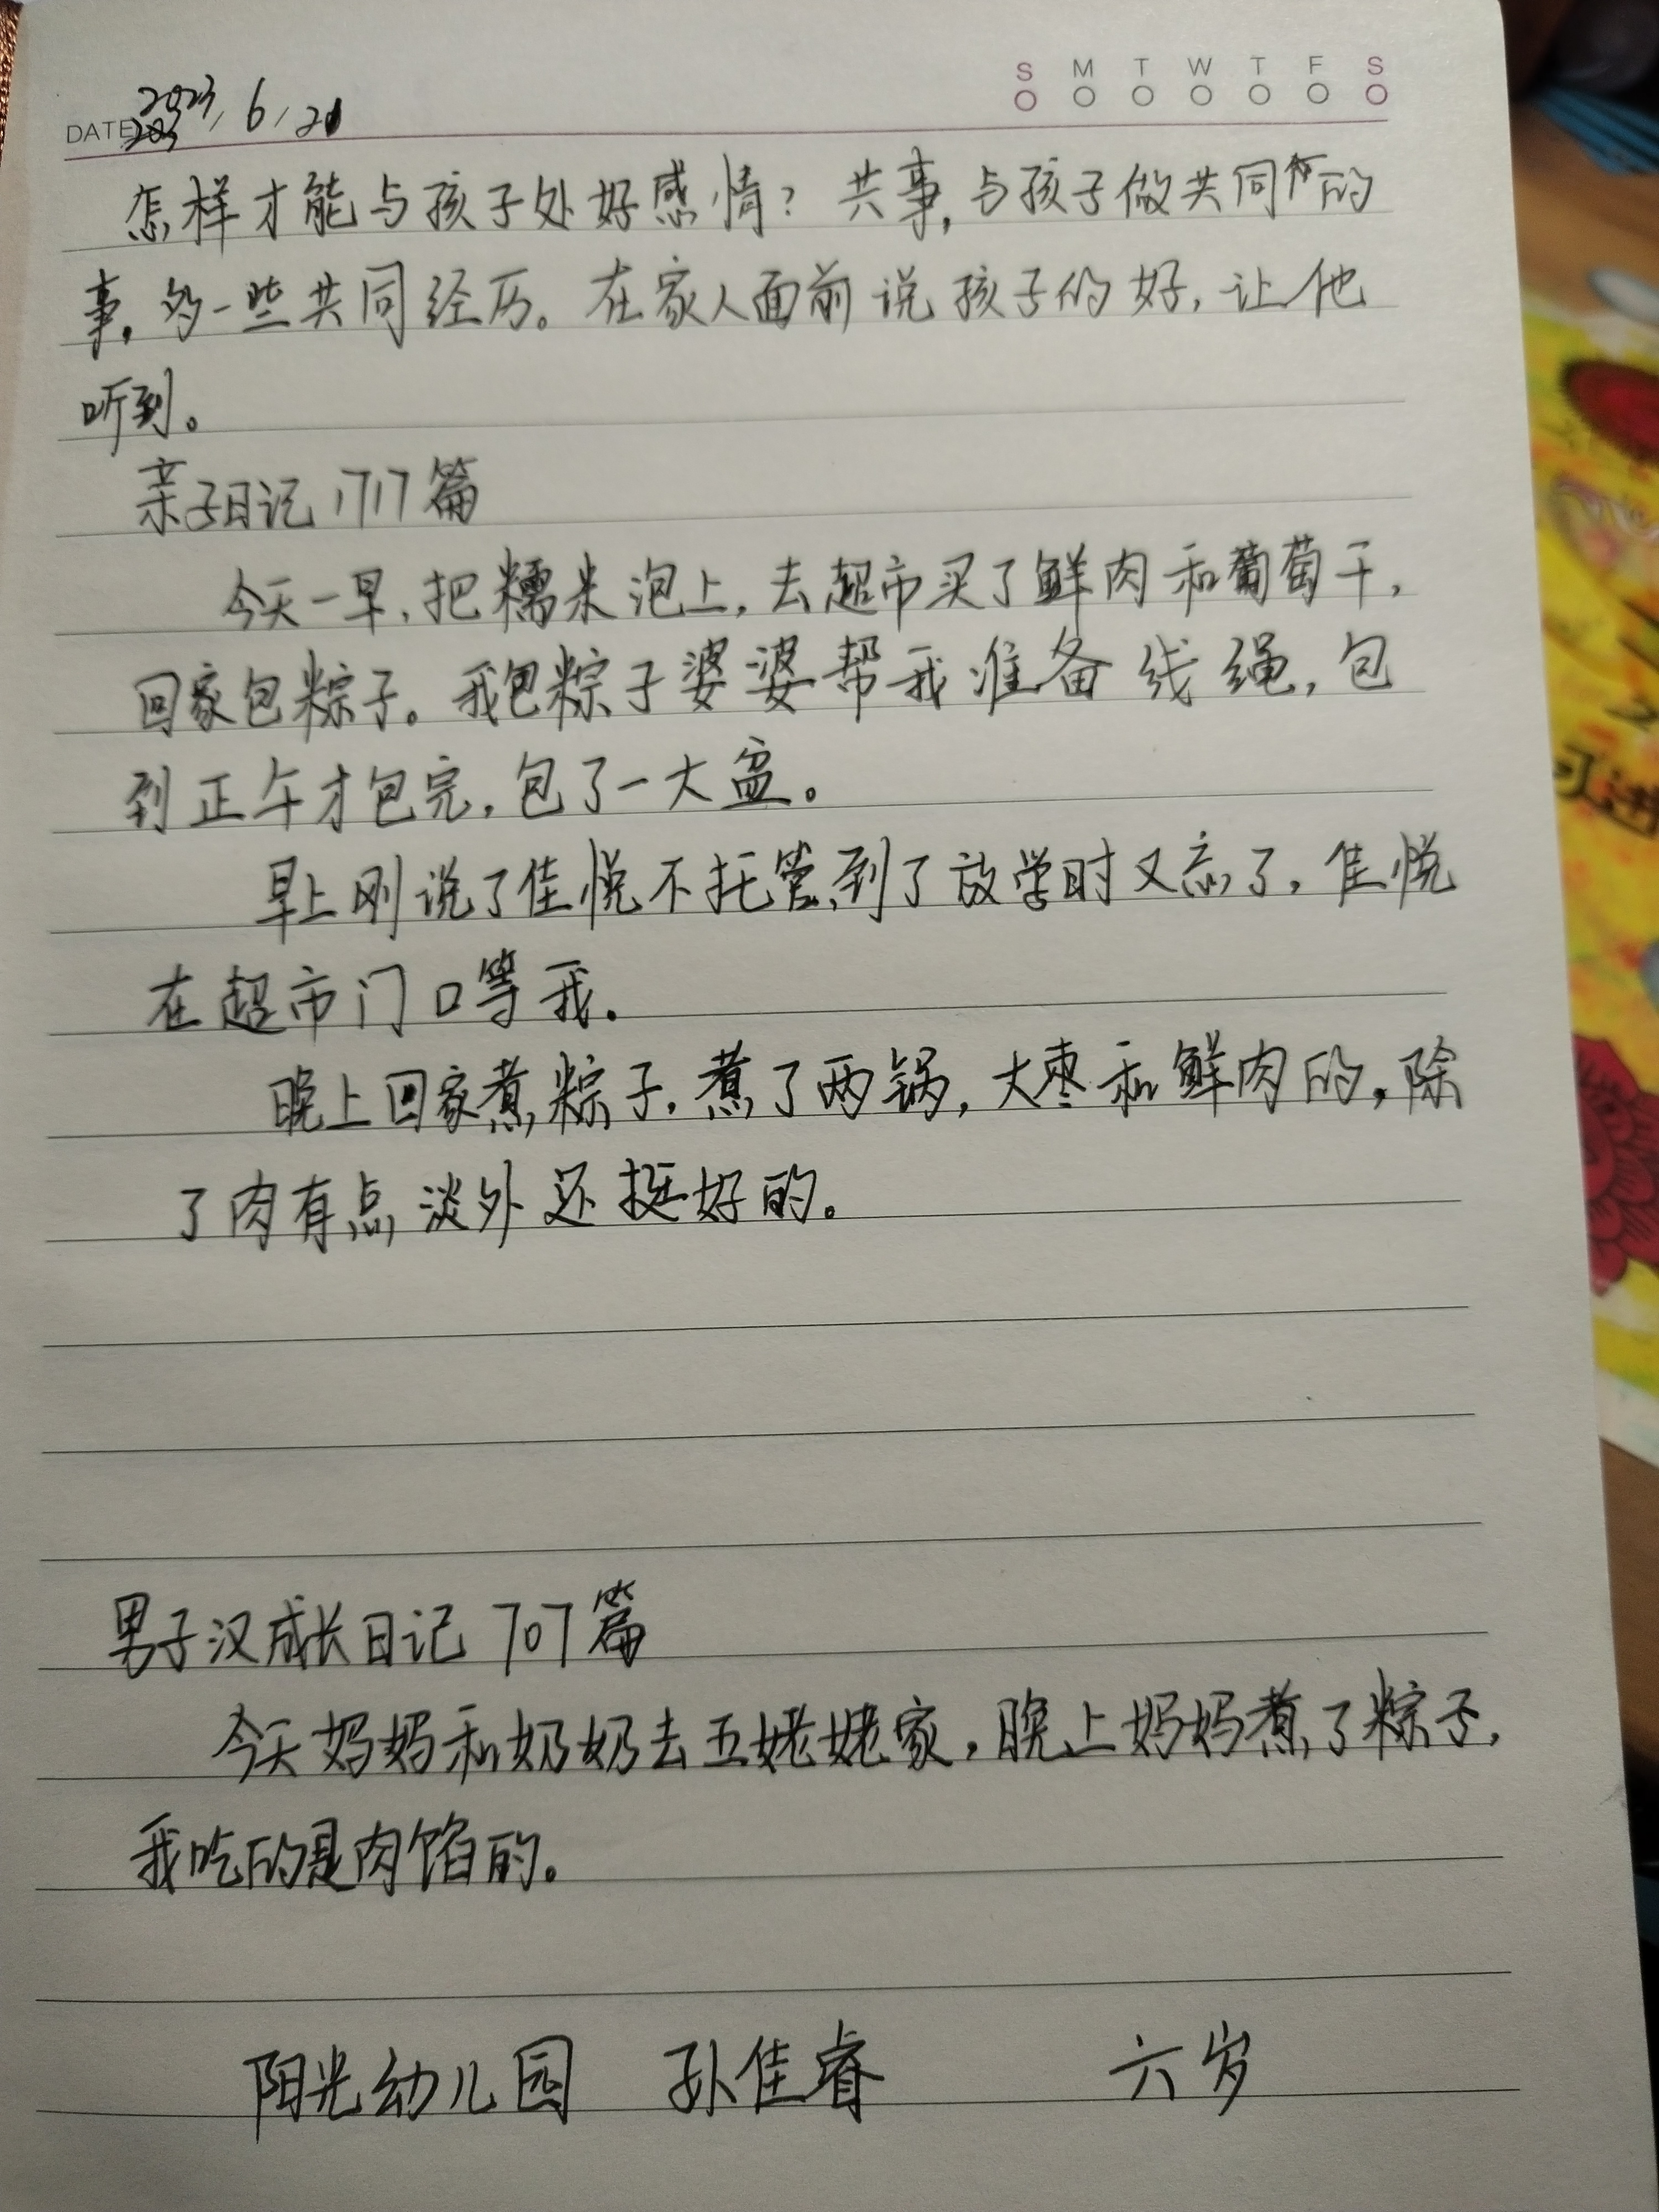 S M T W T F S
DATE 2023/6/21
怎样才能与孩子处好感情？共事，与孩子做共同的
事。的一些共同经历。在家人面前说孩子的好，让他
听到。
亲子日记1717篇
今天一早，把糯米泡上，去超市买了鲜肉和葡萄干，
回家包粽子。我包粽子婆婆帮我准备线绳，包
到正午才包完，包了一大盆。
早上刚说了佳悦不托管，到了放学时又忘了，佳悦
在超市门口等我。
晚上回家煮粽子，煮了两锅，大枣和鲜肉的，除
了肉有点淡外还挺好的。
男子汉成长日记707篇
今天妈妈和奶奶去五姥姥家，晚上妈妈煮了粽子，
我吃的是肉馅的。
阳光幼儿园 孙佳睿 六岁